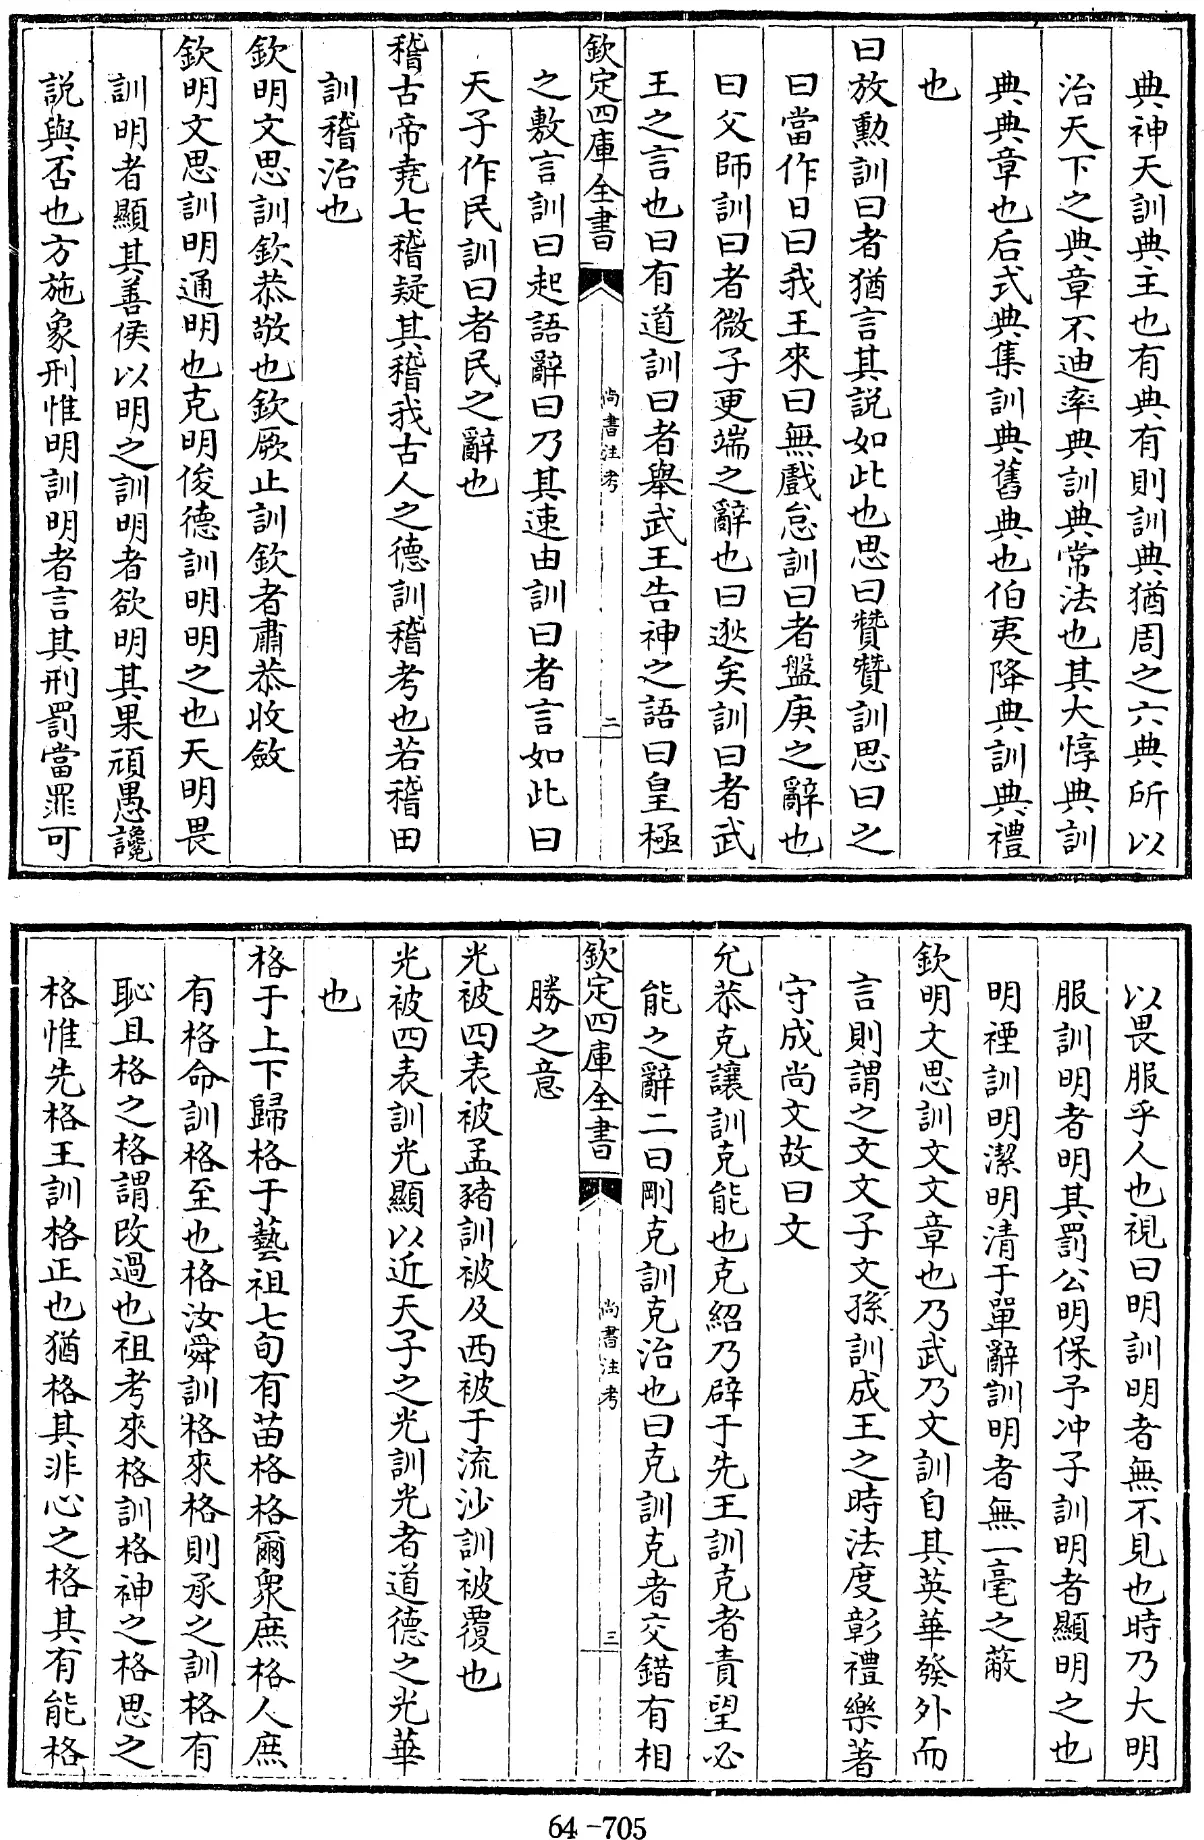 典神天訓典主也有典有則訓典猶周之六典所以
治天下之典章不迪率典訓典常法也其大惇典訓
典典章也后式典集訓典舊典也伯夷降典訓典禮
也
曰放勲訓曰者猶言其説如此也思曰贊贊訓思曰之
曰當作日曰我王來曰無戲怠訓曰者盤庚之辭也
曰父師訓曰者微子更端之辭也曰逖矣訓曰者武
王之言也曰有道訓曰者舉武王告神之語曰皇極
欽定四庫全書
尚書注考
二
之敷言訓曰起語辭曰乃其速由訓曰者言如此曰
天子作民訓曰者民之辭也
稽古帝堯七稽疑其稽我古人之德訓稽考也若稽田
訓稽治也
欽明文思訓欽恭敬也欽厥止訓欽者肅恭收斂
欽明文思訓明通明也克明俊德訓明明之也天明畏
訓明者顯其善侯以明之訓明者欲明其果頑愚讒
説與否也方施象刑惟明訓明者言其刑罰當罪可
以畏服乎人也視曰明訓明者無不見也時乃大明
服訓明者明其罰公明保予冲子訓明者顯明之也
明禋訓明潔明清于單辭訓明者無一毫之蔽
欽明文思訓文文章也乃武乃文訓自其英華發外而
言則謂之文文子文孫訓成王之時法度彰禮樂著
守成尚文故曰文
允恭克讓訓克能也克紹乃辟于先王訓克者責望必
能之辭二曰剛克訓克治也曰克訓克者交錯有相
欽定四庫全書
尚書注考
三
勝之意
光被四表被孟豬訓被及西被于流沙訓被覆也
光被四表訓光顯以近天子之光訓光者道德之光華
也
格于上下歸格于藝祖七旬有苗格格爾衆庶格人庶
有格命訓格至也格汝舜訓格來格則承之訓格有
恥且格之格謂改過也祖考來格訓格神之格思之
格惟先格王訓格正也猶格其非心之格其有能格
64-705